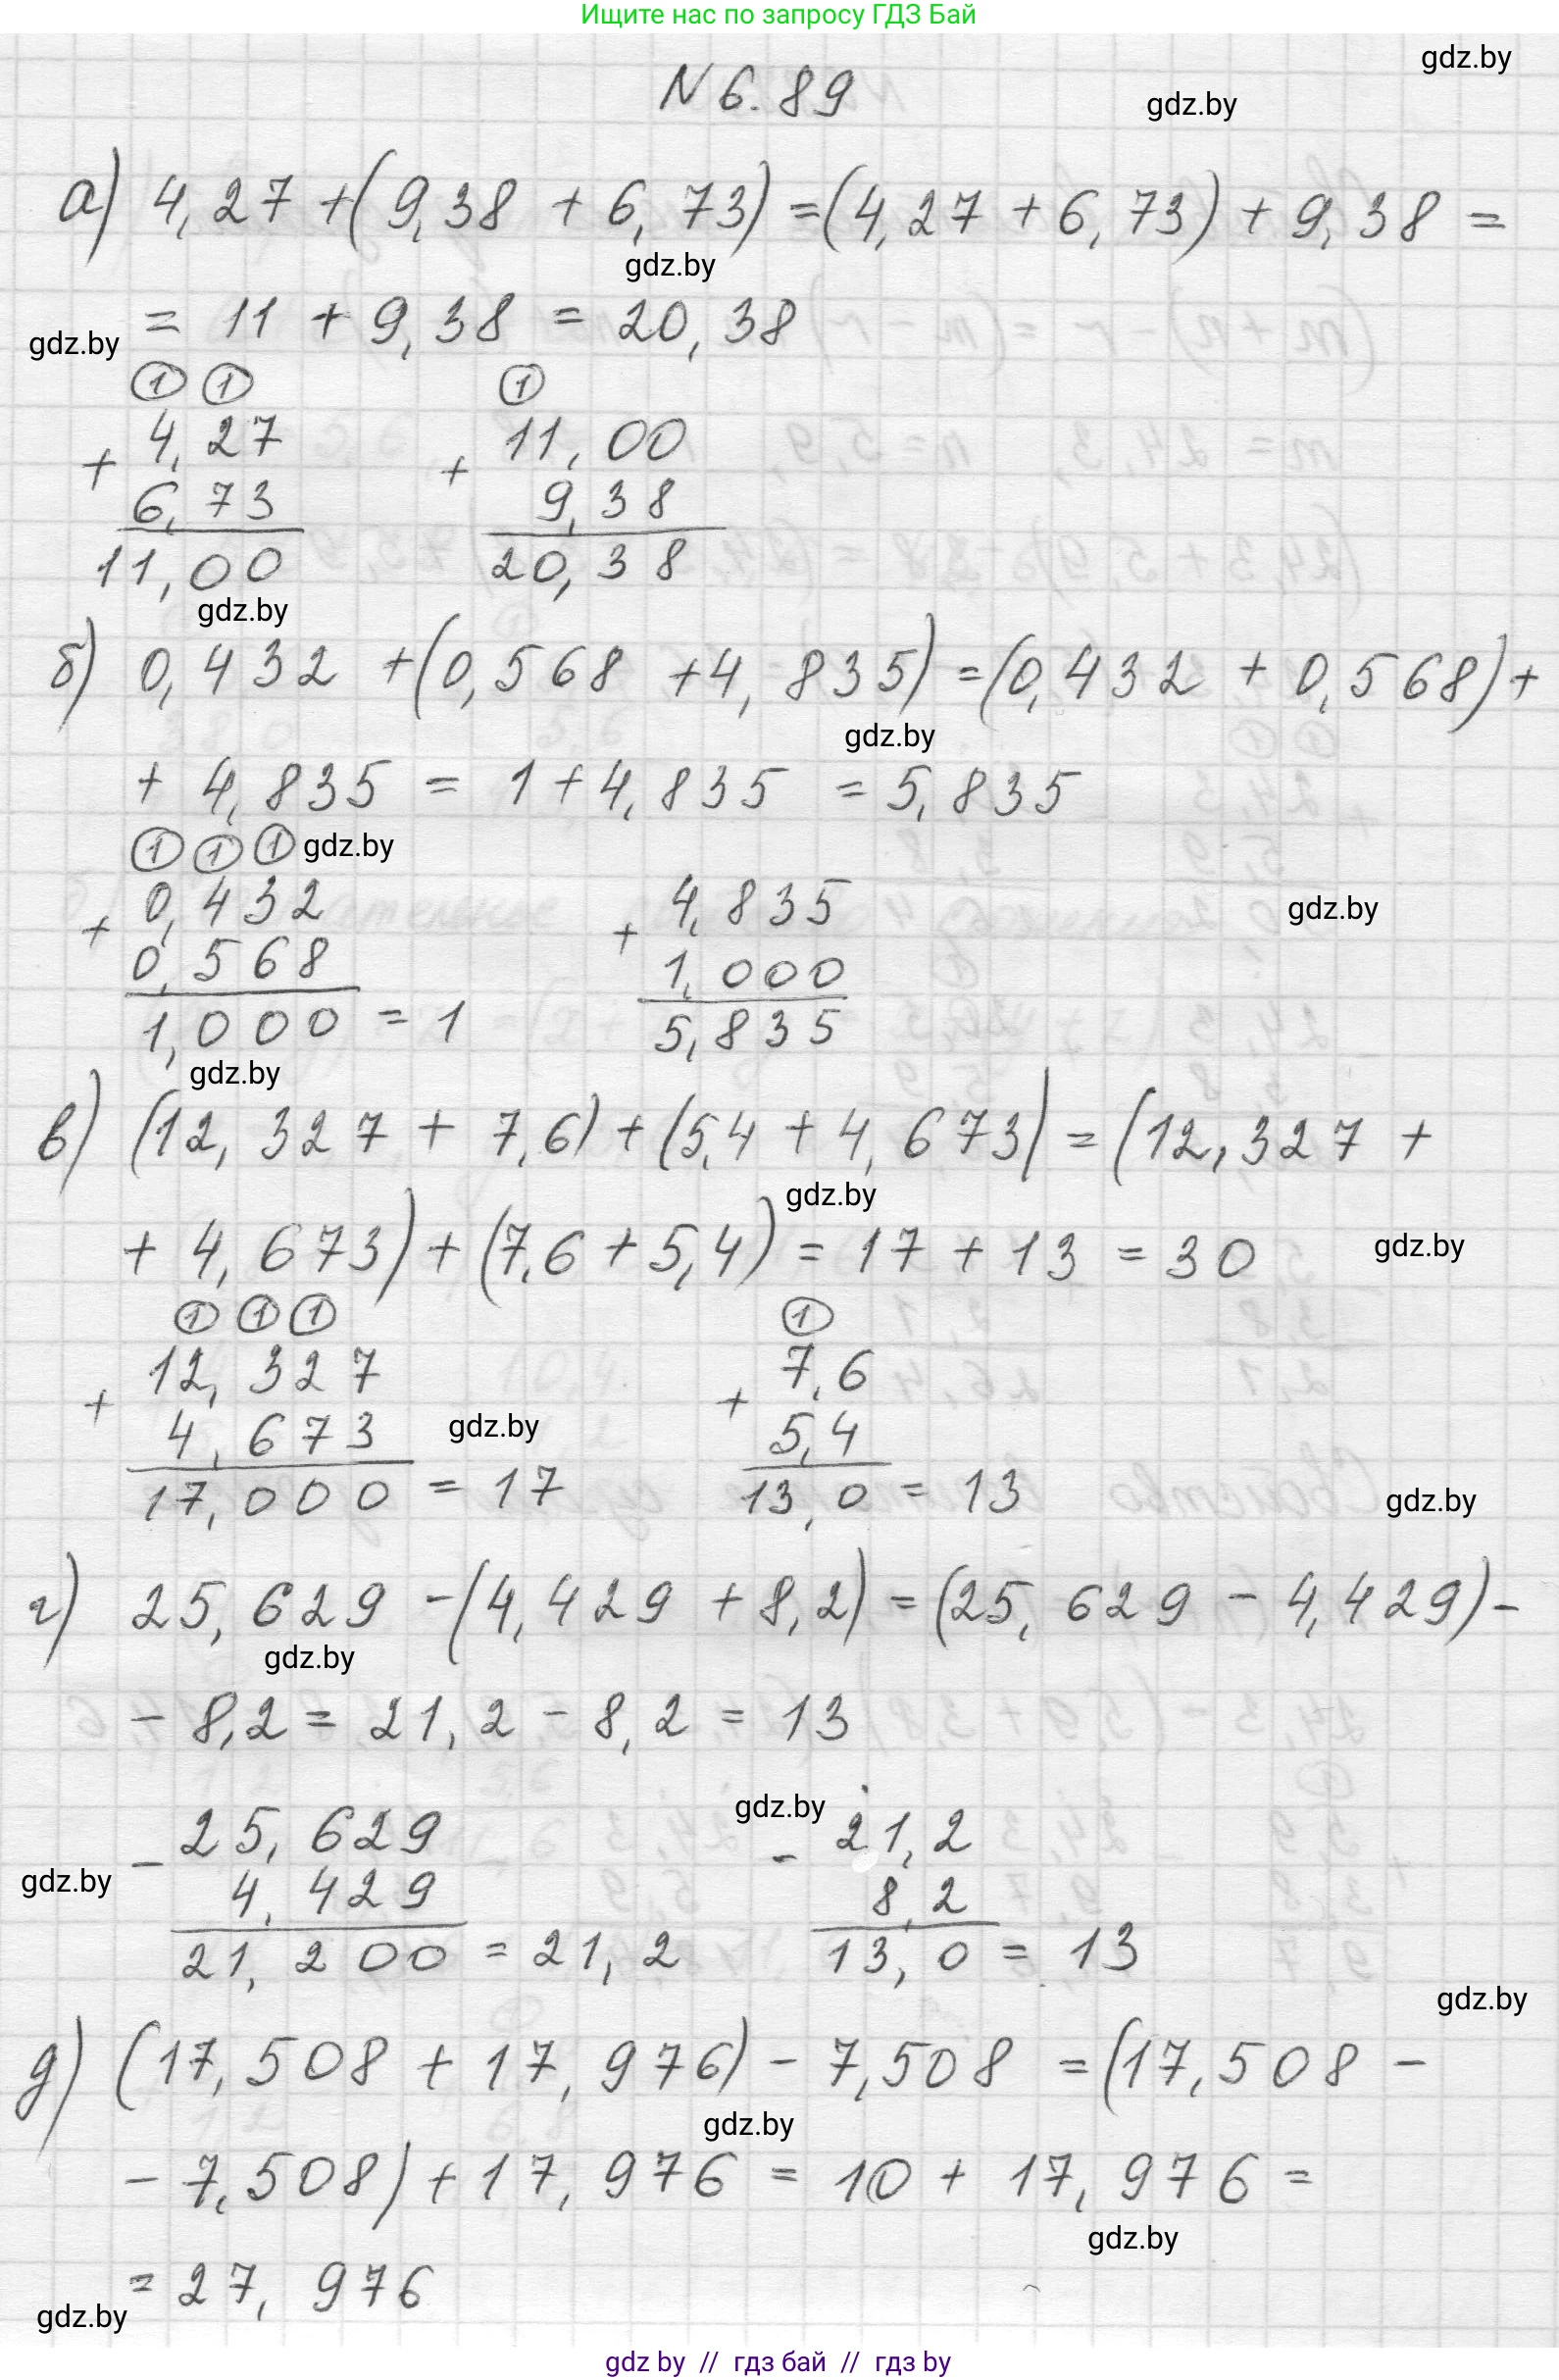 Ищите нас по запросу ГДЗ Бай
gdz.by
N 6.89
gdz.by
а) 4,27 + (9,38 + 6,73) = (4,27 + 6,73) + 9,38 =
gdz.by
= 11 + 9,38 = 20,38
gdz.by
1 1 1
+ 4,27 + 11,00
6,73 9,38
11,00 20,38
gdz.by
б) 0,432 + (0,568 + 4,835) = (0,432 + 0,568) +
gdz.by
+ 4,835 = 1 + 4,835 = 5,835
1 1 1 gdz.by
+ 0,432 + 4,835
gdz.by
0,568 1,000
1,000 = 1 5,835
gdz.by
в) (12,327 + 7,6) + (5,4 + 4,673) = (12,327 +
gdz.by
+ 4,673) + (7,6 + 5,4) = 17 + 13 = 30
gdz.by
1 1 1 1
+ 12,327 + 7,6
4,673 5,4
gdz.by
17,000 = 17 13,0 = 13
gdz.by
г) 25,629 - (4,429 + 8,2) = (25,629 - 4,429) -
gdz.by
- 8,2 = 21,2 - 8,2 = 13
gdz.by
- 25,629 - 21,2
gdz.by
4,429 8,2
21,200 = 21,2 13,0 = 13
gdz.by
д) (17,508 + 17,976) - 7,508 = (17,508 -
gdz.by
- 7,508) + 17,976 = 10 + 17,976 =
gdz.by
= 27,976
gdz.by
gdz by // гдз бай // gdz by